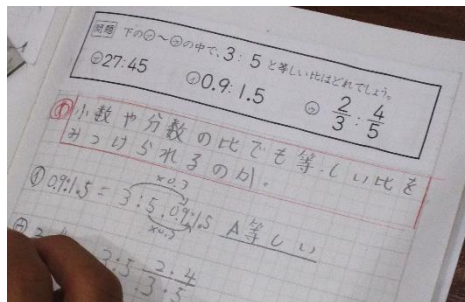 問題 下の㋐〜㋒の中で、3:5と等しい比はどれでしょう。
㋐27:45 ㋑0.9:1.5 ㋒2/3:4/5
小数や分数の比でも等しい比を
みつけられるのか。
×0.3
㋑0.9:1.5=3:5 0.9:1.5 A 等しい
×0.3
3:5 2/3:4/5